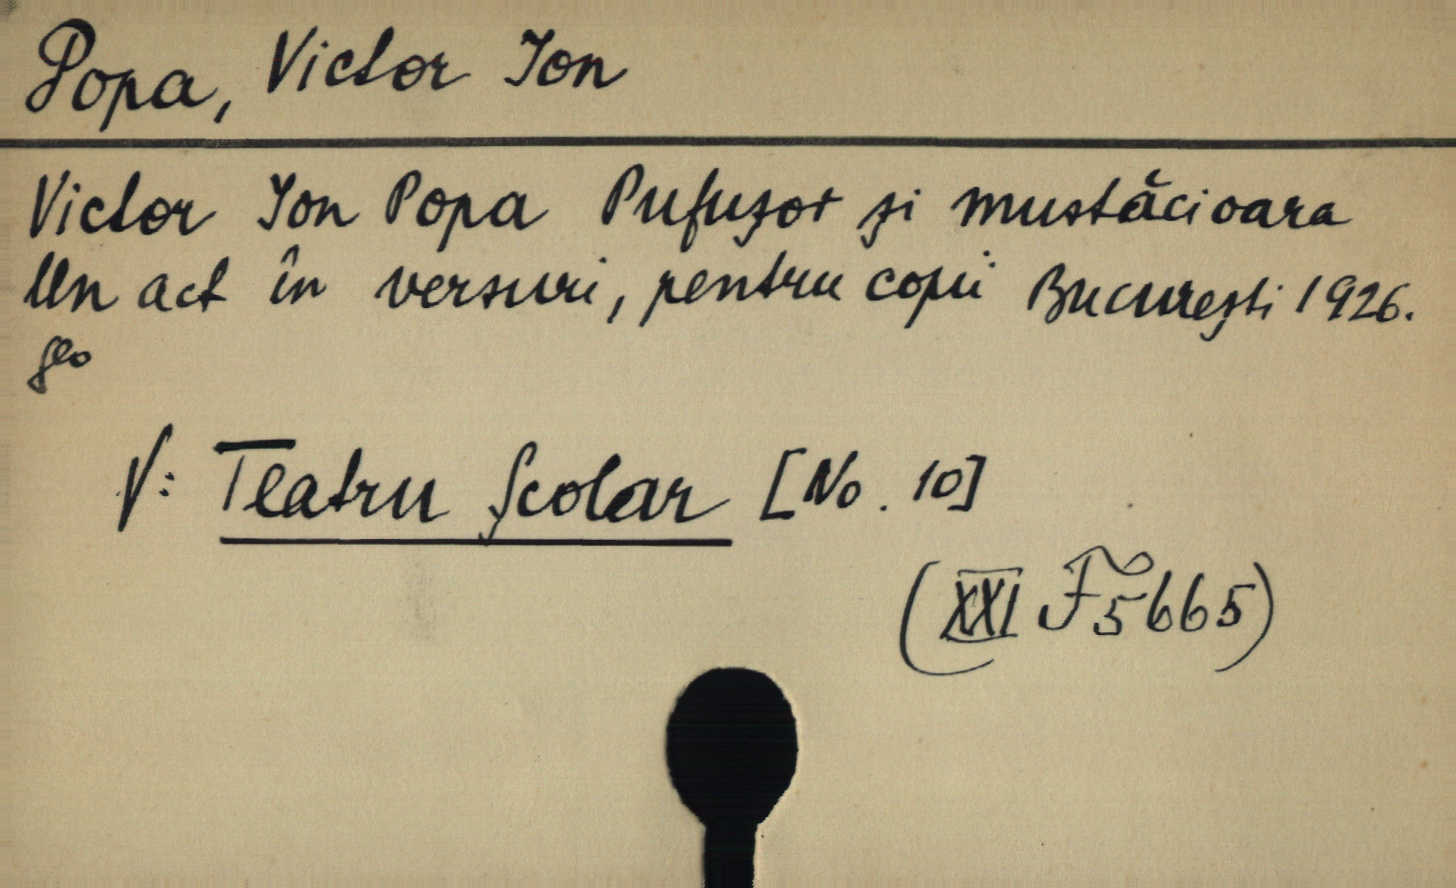 Popa, Victor Ion
Victor Ion Popa Pufușor și mustăcioara
Un act în versuri, pentru copii București 1926.
8º
V: Teatru Școlar [No. 10]
(XXI F 5665)